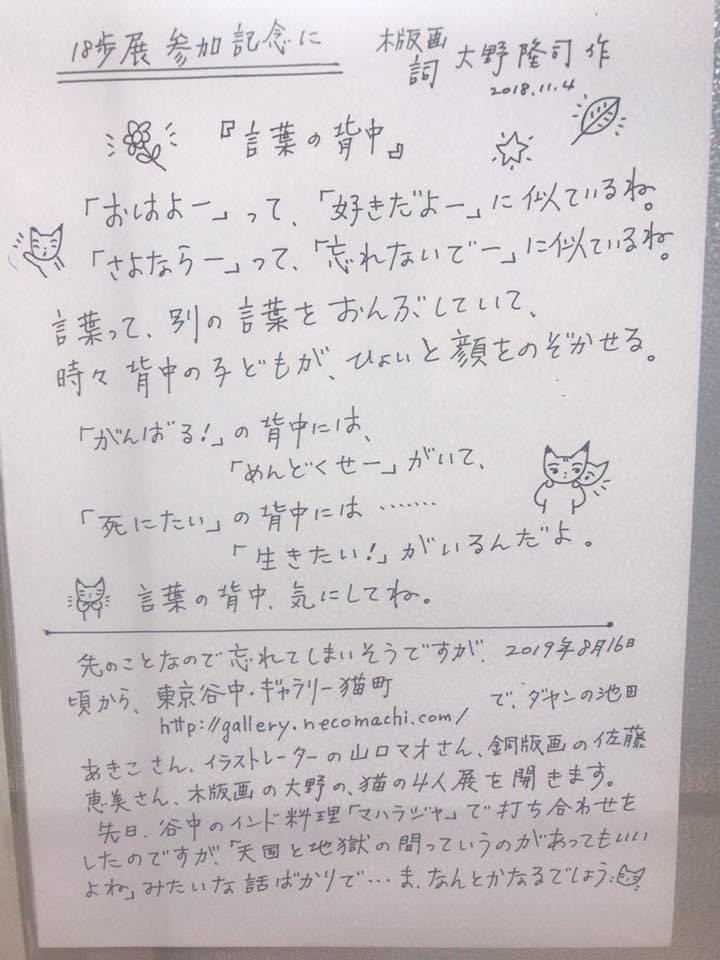 18歩展 参加記念に
木版画 大野隆司 作
詞
2018.11.4
『言葉の背中』
「おはよー」って、「好きだよー」に似ているね。
「さよならー」って、「忘れないでー」に似ているね。
言葉って、別の言葉をおんぶしていて、
時々背中の子どもが、ひょいと顔をのぞかせる。
「がんばる!」の背中には、
「めんどくせー」がいて、
「死にたい」の背中には‥‥‥
「生きたい!」がいるんだよ。
言葉の背中、気にしてね。
先のことなので忘れてしまいそうですが、2019年8月16日
頃から、東京谷中・ギャラリー猫町
http://gallery.necomachi.com/ で、ダヤンの池田
あきこさん、イラストレーターの山口マオさん、銅版画の佐藤
恵美さん、木版画の大野の、猫の4人展を開きます。
先日、谷中のインド料理「マハラジャ」で打ち合わせを
したのですが、「天国と地獄の間っていうのがあってもいい
よね」みたいな話ばかりで…ま、なんとかなるでしょう